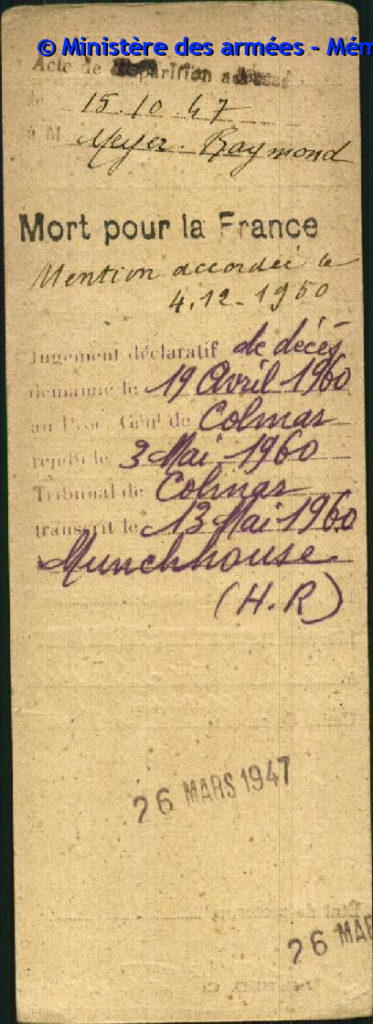 © Ministère des armées - Mém
Acte de disparition adressé
le 15.10.47
à M Meyer. Raymond
Mort pour la France
Mention accordée le
4.12-1950
Jugement déclaratif de décès
demandé le 19 Avril 1960
au Proc. Génl de Colmar
rendu le 3 Mai 1960
Tribunal de Colmar
transcrit le 13 Mai 1960
Munchhouse
(H.R)
26 MARS 1947
26 MAR